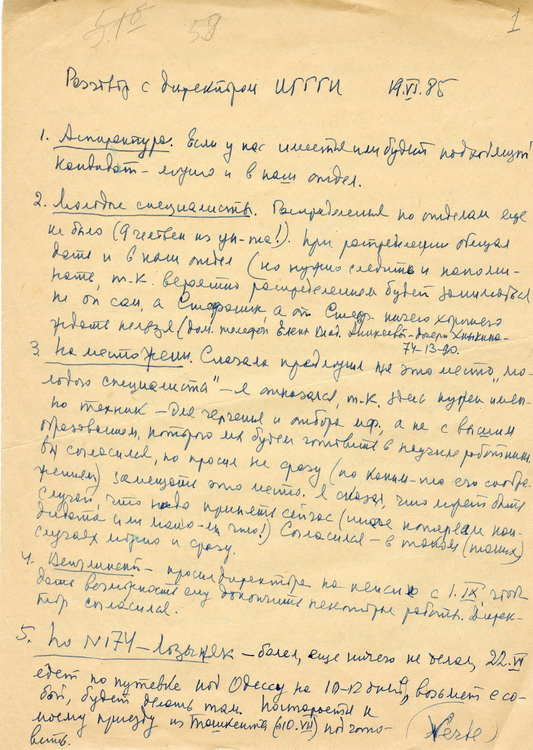 59
1
Разговор с директором ИГГГИ 19.VI.85
1. Аспирантура. Если у нас имеется или будет подходящий
кандидат – можно и в наш отдел.
2. Молодые специалисты. Распределения по отделам еще
не было (9 человек из ун-та!). При распределении обещал
дать и в наш отдел (но нужно следить и напоми-
нать, т.к. вероятно распределением будет заниматься
не он сам, а Стефаник а от Стеф. ничего хорошего
ждать нельзя (дом. телефон Елены Влад.
74-13-90.
3. На место Жени. Сначала предложил на это место „мо-
лодого специалиста" – я отказался, т.к. здесь нужен имен-
но техник – для черчения и отбора а не с высшим
образованием, которого мы будем готовить в научные работники
Он согласился, но просил не сразу (по каким-то его сообра-
жениям) замещать это место. Я сказал, что может быть
случай, что надо принять сейчас (иначе потеряем кан-
дидата и мало-ли что!) Согласился – в таком (таких)
случаях можно и сразу.
4. – просил директора на пенсию с 1.IX, чтоб
дать возможность ему докончить некоторые работы. Дирек-
тор согласился.
5. По N174 – Лозыняк – болел, еще ничего не делал, 22.VI
едет по путевке под Одессу на 10-12 дней, возьмет с со-
бой, будет делать там. Постарается к
моему приезду из Ташкента (10.VII) подгото-
вить.